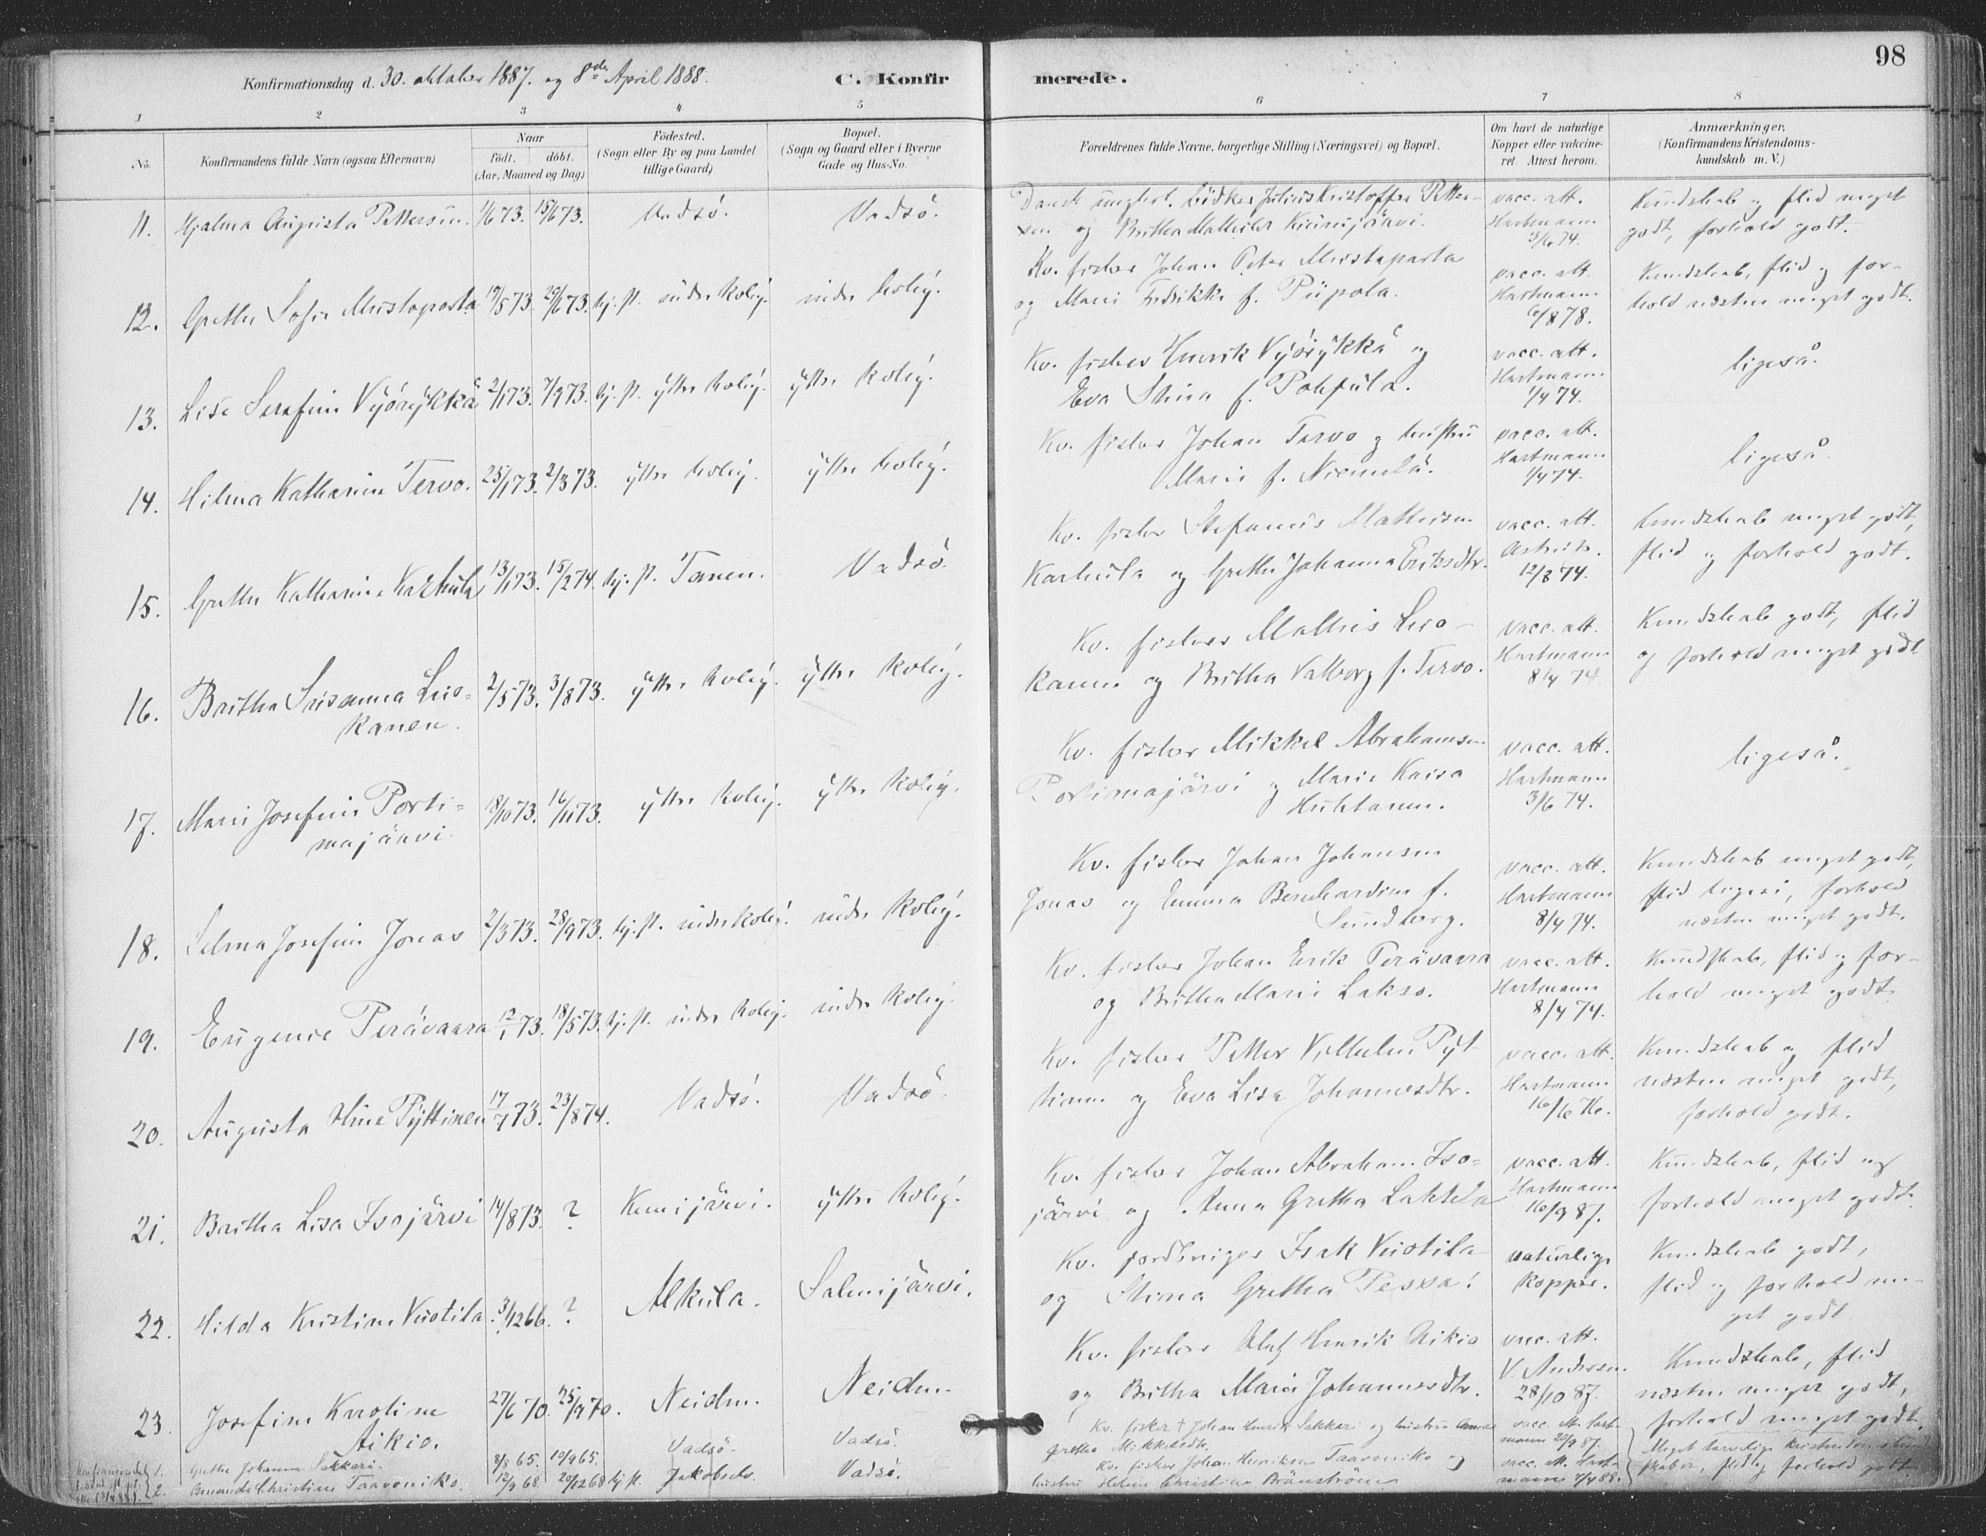 98
Konfirmationsdag d. 30. oktober 1887. og 8de April 1888.
C. Konfirmerede.
1 2 3 4 5 6 7 8
No.
Konfirmandens fulde Navn (ogsaa Efternavn)
Naar
födt. döbt.
(Aar, Maaned og Dag)
Födested.
(Sogn eller By og paa Landet
tillige Gaard)
Bopæl.
(Sogn og Gaard eller i Byerne
Gade og Hus-No.
Forældrenes fulde Navne, borgerlige Stilling (Næringsvei) og Bopæl.
Om havt de naturlige
Kopper eller vakcineret
Attest herom.
Anmærkninger.
(Konfirmandens Kristendomskundskab
m. V.)
11. Hjalma Augusta Pettersen. 1/6 73. 15/6 73. Vadsö. Vadsö.
Dansk bödker Julius Kristoffer Petter-
sen og Britha Mathilde
vacc. att.
Hartmann
3/6 74.
Kundskab og flid meget
godt, forhold godt.
12. Grethe Sofie Mustaparta 29/6 73. hj. st. indre kvbg. indre kvbg.
Kv. fisker Johan Peter Mustaparta
og Marie Fredrikke f. Piipola.
vacc. att.
Hartmann
6/8 78.
Kundskab, flid og for-
hold næsten meget godt.
13. Lise Serafine Vyörykkä 2/1 73. 7/9 73. hj. st. ytre kvbg. ytre kvbg.
Kv. fisker Henrik Vyörykkä og
Eva Stina f. Pohjula.
vacc. att.
Hartmann
1/4 74.
ligeså.
14. Hilma Katharine Tervo. 25/1 73. 2/3 73. ytre kvbg. ytre kvbg.
Kv. fisker Johan Tervo og hustru
Marie f. Niemelä.
vacc. att.
Hartmann
1/4 74.
ligeså.
15. Grethe Katharine Karhula 13/1 73. 15/2 74. hj. st. Tanen. Vadsö.
Kv. fisker Stefanus Mathisen
Karhula og Grethe Johanna Eriksdtr.
vacc. att.
12/8 74.
Kundskab meget godt,
flid og forhold godt.
16. Britha Susanna Luo-
kanen. 2/5 73. 3/8 73. ytre kvbg. ytre kvbg.
Kv. fisker Mathis Luo-
kanen og Britha Valborg f. Tervo.
vacc. att.
Hartmann
8/4 74.
Kundskab godt, flid
og forhold meget godt.
17. Marie Josefine Porti-
majärvi. 18/10 73. 16/11 73. ytre kvbg. ytre kvbg.
Kv. fisker Mikkel Abrahamsen
Portimajärvi og Marie Kaisa
Huhtanen.
vacc. att.
Hartmann
3/6 74.
ligeså.
18. Selma Josefine Jonas 2/3 73. 28/9 73. hj. st. indre kvbg. indre kvbg.
Kv. fisker Johan Johansen
Jonas og Emma Bernhardine f.
Sundberg.
vacc. att.
Hartmann
8/4 74.
Kundskab meget godt,
flid ligeså, forhold
næsten meget godt.
19. Eugenie Perävaara 12/1 73. 18/5 73. hj. st. indre kvbg. indre kvbg.
Kv. fisker Johan Erik Perävaara
og Britha Marie Lakso.
vacc. att.
Hartmann
8/4 74.
Kundskab, flid og for-
hold meget godt.
20. Augusta Pyttinen 17/7 73. 23/8 74. Vadsö. Vadsö.
Kv. fisker Petter Vilhelm Pyt-
tinen og Eva Lisa Johannesdtr.
vacc. att.
Hartmann
16/6 76.
Kundskab og flid
næsten meget godt,
forhold godt.
21. Britha Lisa Isojärvi 14/8 73. ? Kemijärvi. ytre kvbg.
Kv. fisker Johan Abraham Iso-
järvi og Anna Gretha Lakkela
vacc. att.
Hartmann
16/9 87.
Kundskab, flid og
forhold meget godt.
22. Hilda Kristine Vuotila 3/12 66. ? Alkula. Salmijärvi.
Kv. jordbruger Isak Vuotila
og Stina Gretha Pessa.
naturlige
kopper.
Kundskab godt,
flid og forhold me-
get godt.
23. Josefine Karoline
Aikio. 27/6 70. 25/9 70. Neiden. Neiden.
Kv. fisker Olaf Henrik Aikio
og Britha Maria Johannesdtr.
vacc. att.
V. Andersen.
28/10 87.
Kundskab, flid
næsten meget godt,
forhold meget godt.
1. Grethe Johanna Sakkari. 8/8 65. 10/9 65. Vadsö. Vadsö.
Kv. fisker † Johan Henrik Sakkari og hustru Anna
Gretha Mikkelsdtr.
vacc. att. Hart-
mann 20/9 87.
2. Amanda Christine Taavoniko. 12/9 68. 20/12 68 hj. st. Jakobselv. Vadsö.
Kv. fisker Johan Henriksen Taavoniko og
hustru Helene Christine Brännström
vacc. att. Hart-
mann 7/4 88.
Meget tarvelige kristendomskund-
skaber, flid og forhold godt.